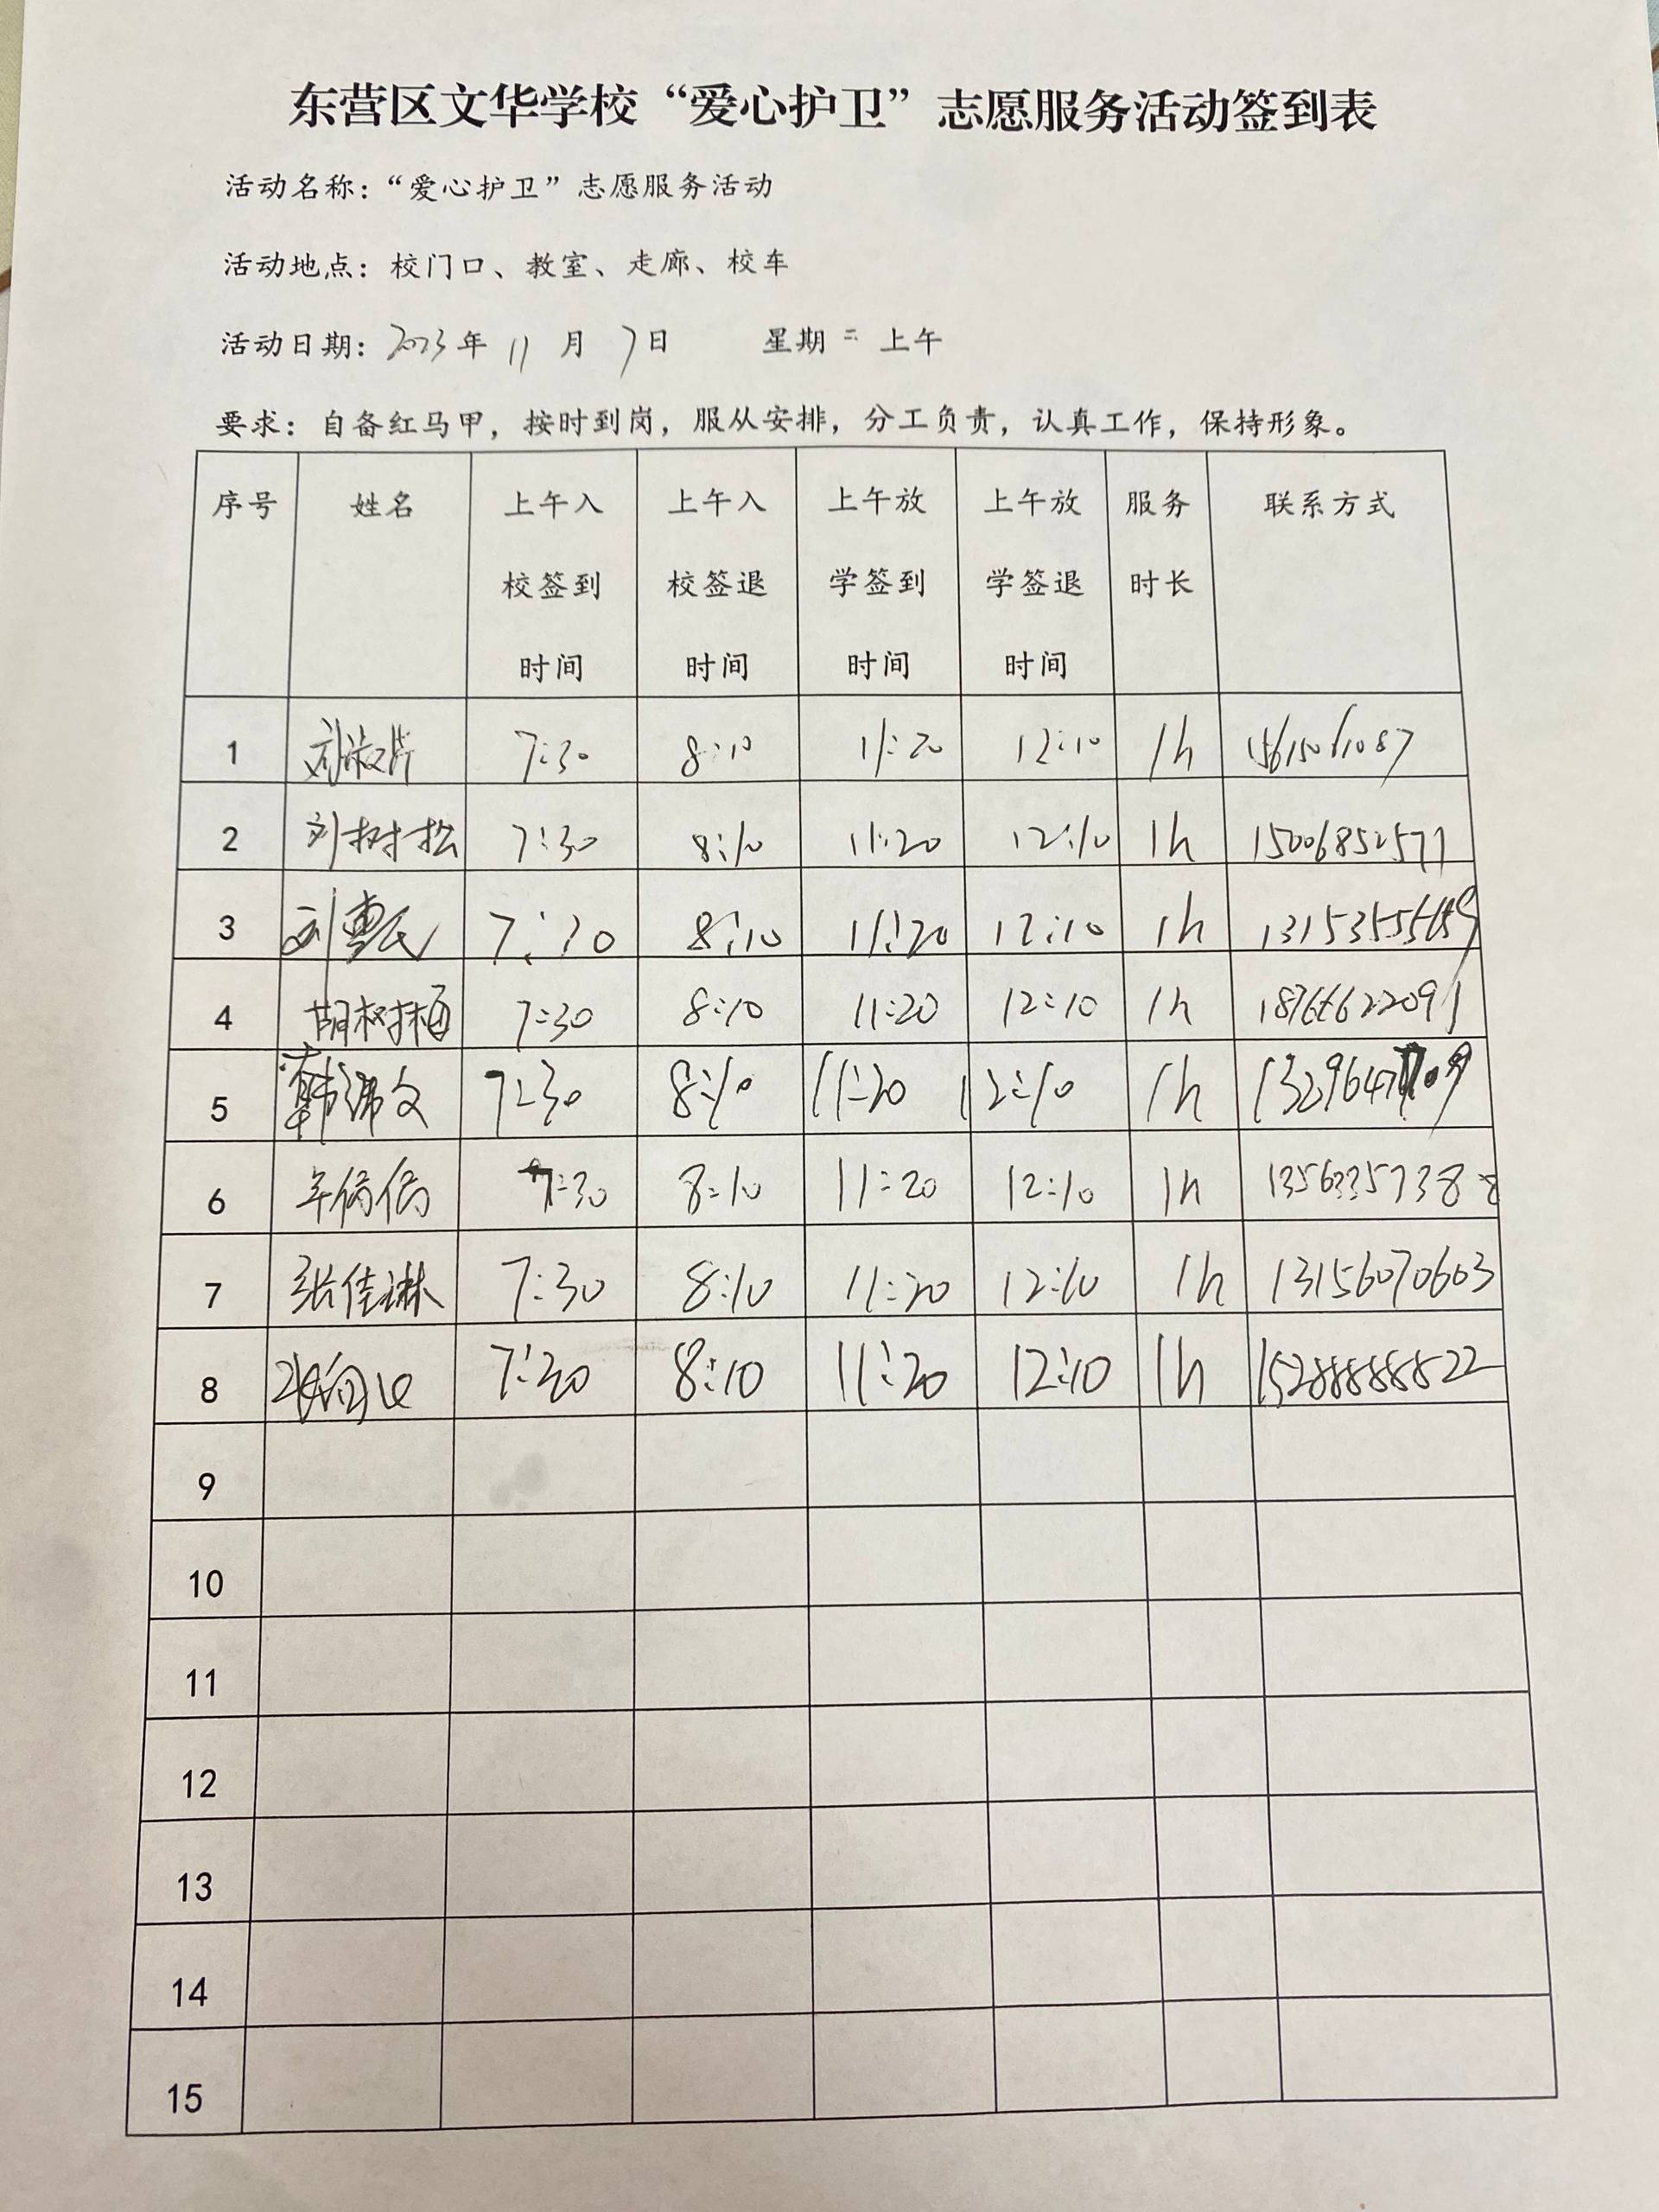 东营区文华学校“爱心护卫”志愿服务活动签到表
活动名称：“爱心护卫”志愿服务活动
活动地点：校门口、教室、走廊、校车
活动日期：2023年 11 月 7日 星期二 上午
要求：自备红马甲，按时到岗，服从安排，分工负责，认真工作，保持形象。
序号 姓名 上午入校签到时间 上午入校签退时间 上午放学签到时间 上午放学签退时间 服务时长 联系方式
1 7:30 8:10 11:20 12:10 1h
2 刘树松 7:30 8:10 11:20 12:10 1h 15006852571
3 8:10 11:20 12:10 1h
4 胡树梅 7:30 8:10 11:20 12:10 1h
5 7:30 8:10 11:20 12:10 1h
6 7:30 8:10 11:20 12:10 1h 13563357388
7 张佳琳 7:30 8:10 11:20 12:10 1h 13156070603
8 8:10 11:20 12:10 1h 15288888822
9
10
11
12
13
14
15